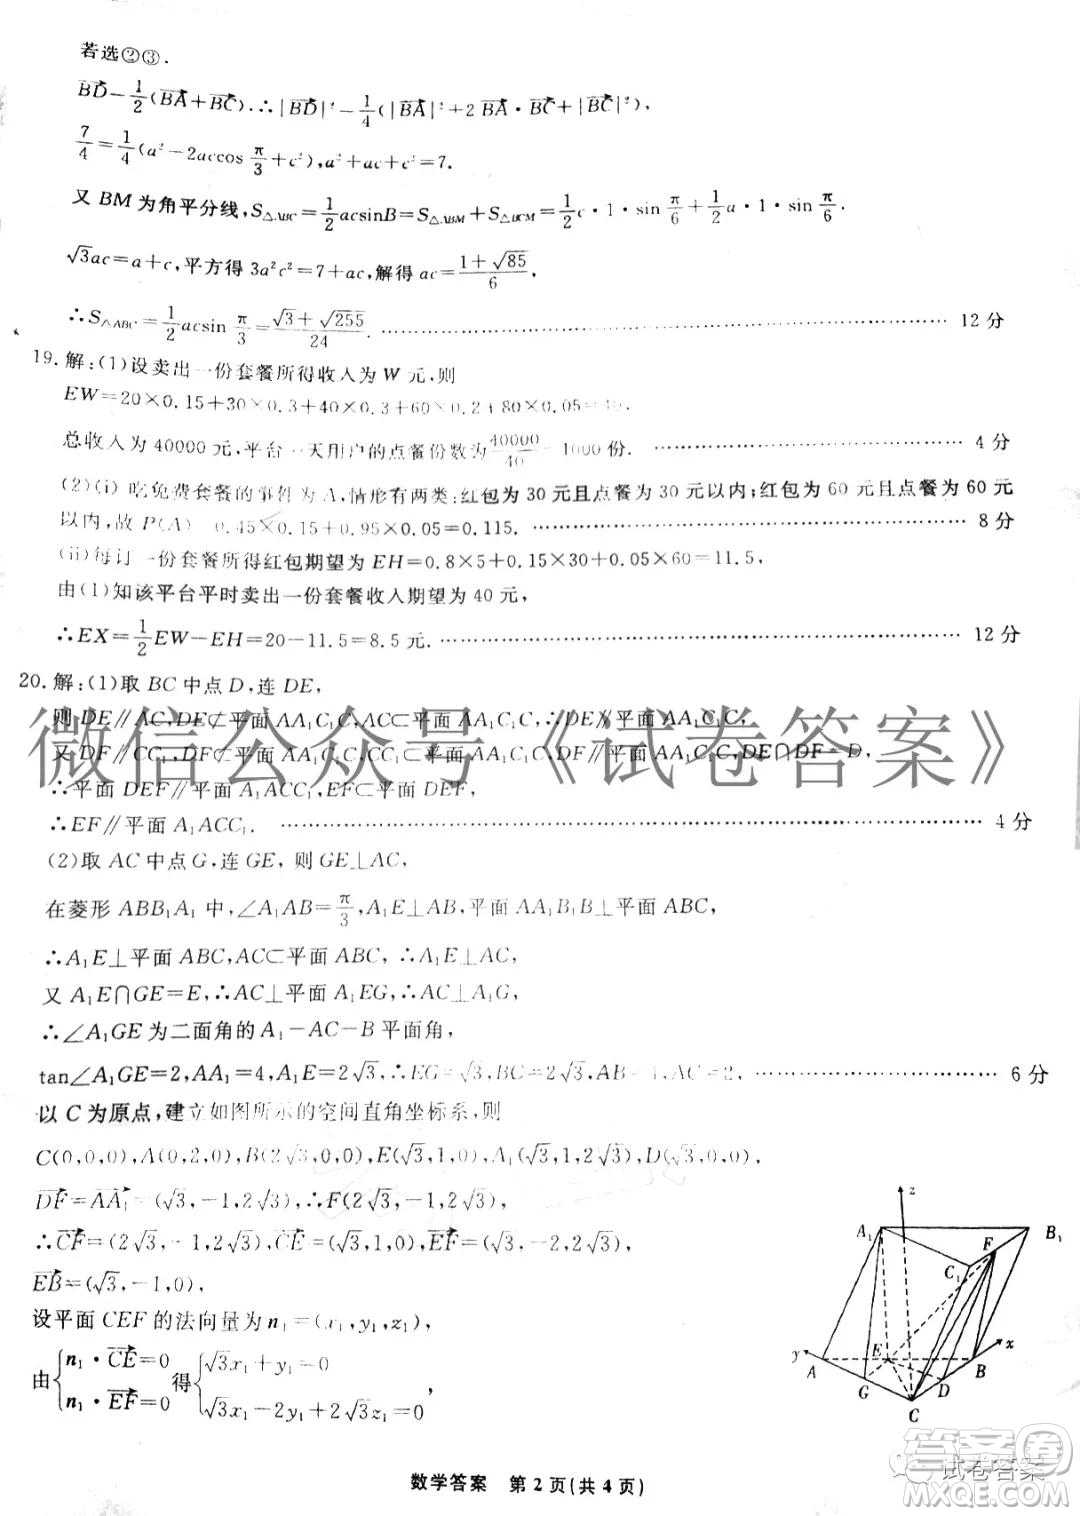 若选②③.
BD→ = 1/2(BA→+BC→).∴|BD→|²=1/4(|BA→|²+2BA→·BC→+|BC→|²),
7/4=1/4(a²-2accos π/3+c²),a²+ac+c²=7.
又 BM 为角平分线,S△ABC=1/2acsinB=S△ABM+S△BCM=1/2c·1·sin π/6+1/2a·1·sin π/6.
√3ac=a+c,平方得 3a²c²=7+ac,解得 ac=(1+√85)/6,
∴S△ABC=1/2acsin π/3=(√3+√255)/24. ………… 12 分
19.解:(1)设卖出一份套餐所得收入为 W 元,则
EW=20×0.15+30×0.3+40×0.3+60×0.2+80×0.05=40,
总收入为 40000 元,平台一天用户的点餐份数为40000/40=1000 份. ………… 4 分
(2)(i)吃免费套餐的事件为 A,情形有两类:红包为 30 元且点餐为 30 元以内;红包为 60 元且点餐为 60 元
以内,故 P(A) 0.45×0.15+0.95×0.05=0.115. ………… 8 分
(ii)每订一份套餐所得红包期望为 EH=0.8×5+0.15×30+0.05×60=11.5,
由(1)知该平台平时卖出一份套餐收入期望为 40 元,
∴EX=1/2EW-EH=20-11.5=8.5 元. ………… 12 分
20.解:(1)取 BC 中点 D,连 DE,
则 DE∥AC,DE⊄平面 AA₁C₁C,AC⊂平面 AA₁C₁C,∴DE∥平面 AA₁C₁C,
又 DF∥CC₁,DF⊄平面 AA₁C₁C,CC₁⊂平面 AA₁C₁C,∴DF∥平面 AA₁C₁C,DE∩DF=D,
∴平面 DEF∥平面 A₁ACC₁,EF⊂平面 DEF,
∴EF∥平面 A₁ACC₁. ………… 4 分
(2)取 AC 中点 G,连 GE, 则 GE⊥AC,
在菱形 ABB₁A₁ 中,∠A₁AB=π/3,A₁E⊥AB,平面 AA₁B₁B⊥平面 ABC,
∴A₁E⊥平面 ABC,AC⊂平面 ABC,∴A₁E⊥AC,
又 A₁E∩GE=E,∴AC⊥平面 A₁EG,AC⊥A₁G,
∴∠A₁GE 为二面角的 A₁-AC-B 平面角,
tan∠A₁GE=2,AA₁=4,A₁E=2√3,∴EG=√3,BC=2√3,AC=2, ………… 6 分
以 C 为原点,建立如图所示的空间直角坐标系,则
C(0,0,0),A(0,2,0),B(2√3,0,0),E(√3,1,0),A₁(√3,1,2√3),D(√3,0,0),
DF→=AA₁→=(√3,-1,2√3),∴F(2√3,-1,2√3),
∴CF→=(2√3,-1,2√3),CE→=(√3,1,0),EF→=(√3,-2,2√3),
EB→=(√3,-1,0),
设平面 CEF 的法向量为 n₁=(x₁,y₁,z₁),
由{n₁·CE→=0 得{√3x₁+y₁=0
n₁·EF→=0 √3x₁-2y₁+2√3z₁=0,
z
A₁
F
B₁
C₁
x
y
E
A
B
G
D
C
微信公众号《试卷答案》
数学答案 第 2 页(共 4 页)
答案圈
试卷答案
MXQE.COM